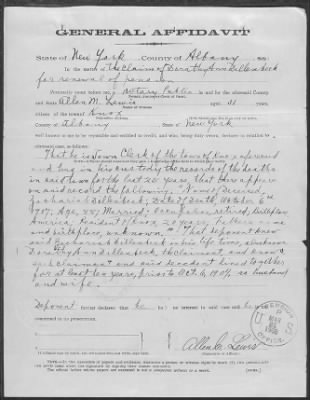 GENERAL AFFIDAVIT
State of New York County of Albany, ss:
In the matter of The Claim of Dorothy Ann Dillenbeck
for renewal of pension
Personally came before me, a Notary Public in and for the aforesaid County
and State Allen M. Lewis aged 31 years,
citizen of the town of Knox
County of Albany State of New York
well known to me to be reputable and entitled to credit, and who, being duly sworn, declares in relation to
aforesaid case as follows:
That he is Town Clerk of the town of Knox aforesaid
and has in his custody the records of the deaths
in said town for the last 20 years that there appears
on said record the following: "Name of Deceased,
Zachariah Dillenbeck; Date of Death, October 6th
1907; Age, 88; Married; Occupation, retired; Birthplace
America, Resident of Knox, 20 years, Father's name
and birthplace, unknown." That deponent knew
said Zachariah Dillenbeck in his life time, also knows
Dorothy Ann Dillenbeck, the claimant, and knows
said claimant and said decedent lived together
for at least ten years, prior to Oct. 6, 1907 as husband
and wife.
Deponent further declares that he has no interest in said case and is not
concerned in its prosecution.
Allen M. Lewis
U S
PENSION
OFFICE